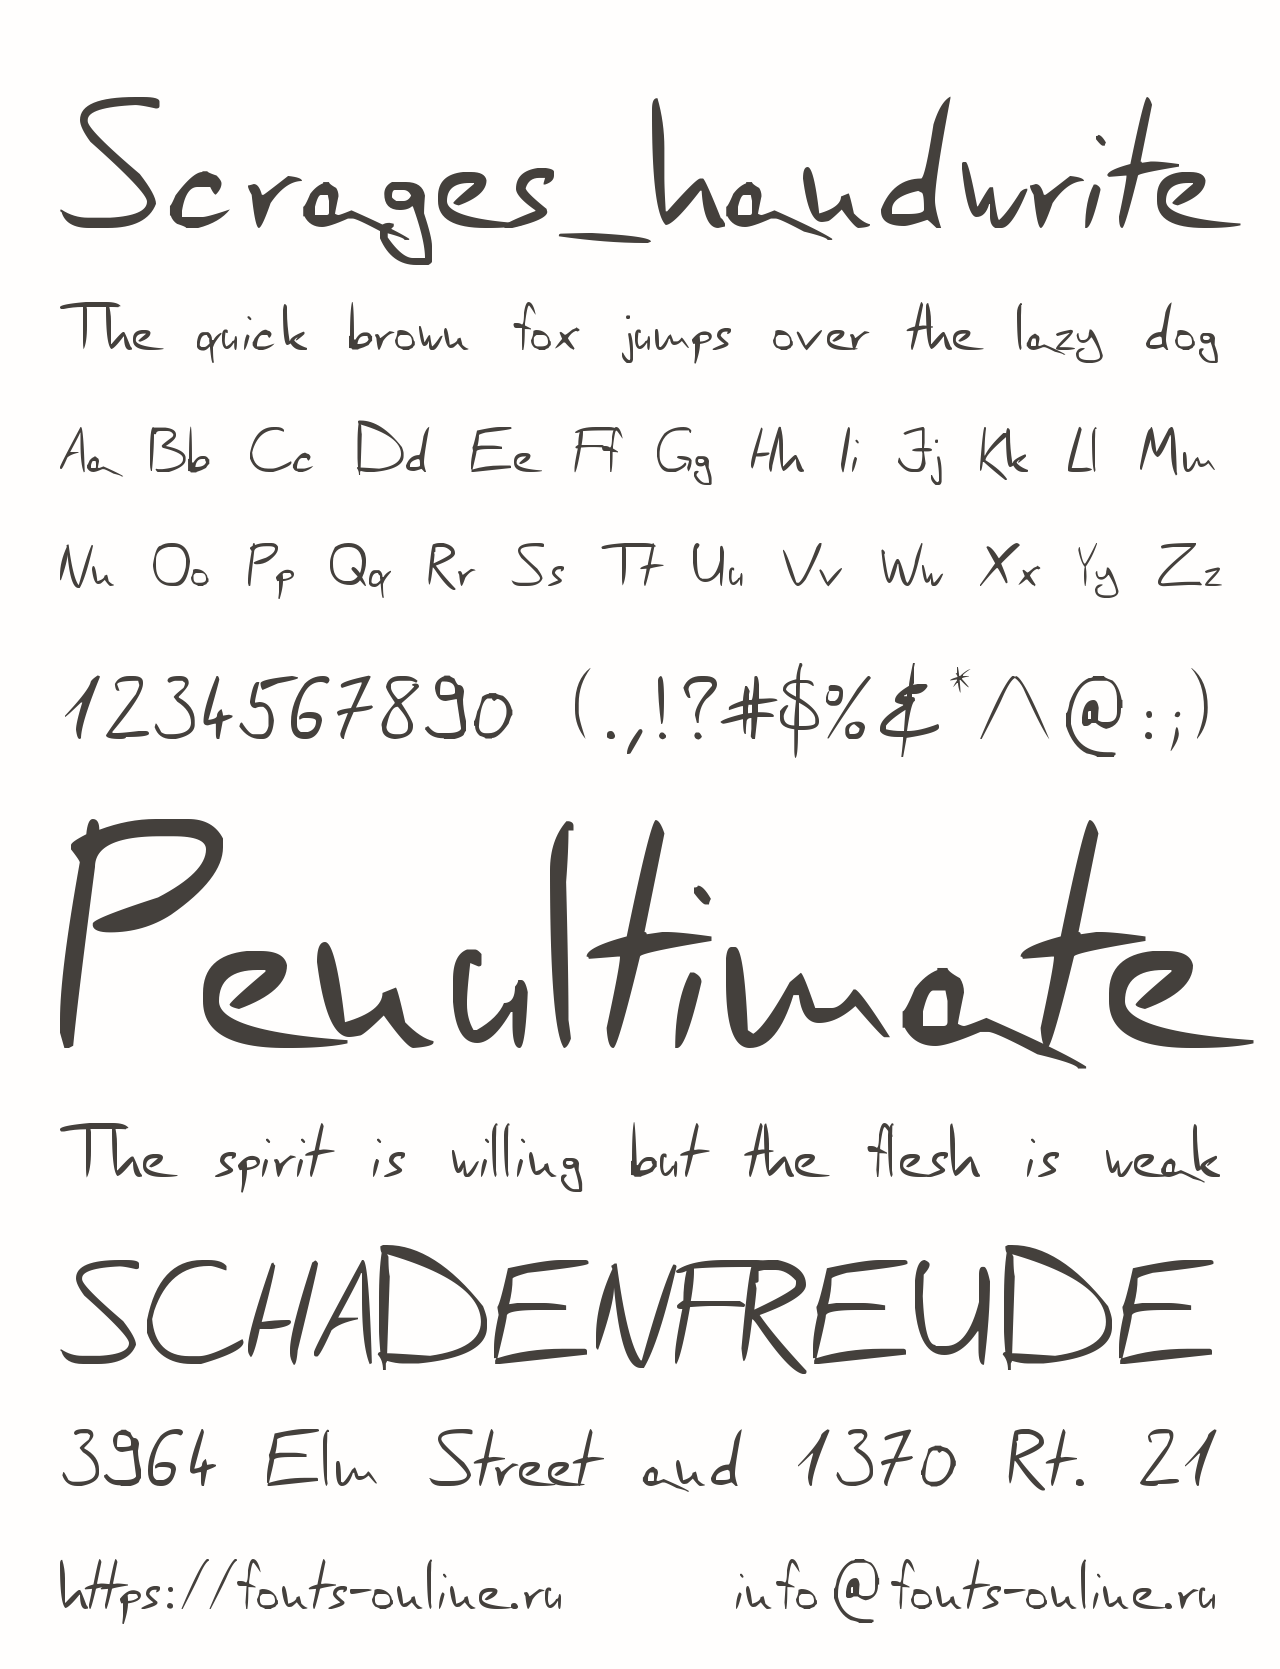 Scrages_handwrite
The quick brown fox jumps over the lazy dog
Aa Bb Cc Dd Ee Ff Gg Hh Ii Jj Kk Ll Mm
Nn Oo Pp Qq Rr Ss Tt Uu Vv Ww Xx Yy Zz
1234567890 (.,!?#$%&*^@:;)
Penultimate
The spirit is willing but the flesh is weak
SCHADENFREUDE
3964 Elm Street and 1370 Rt. 21
https://fonts-online.ru info@fonts-online.ru